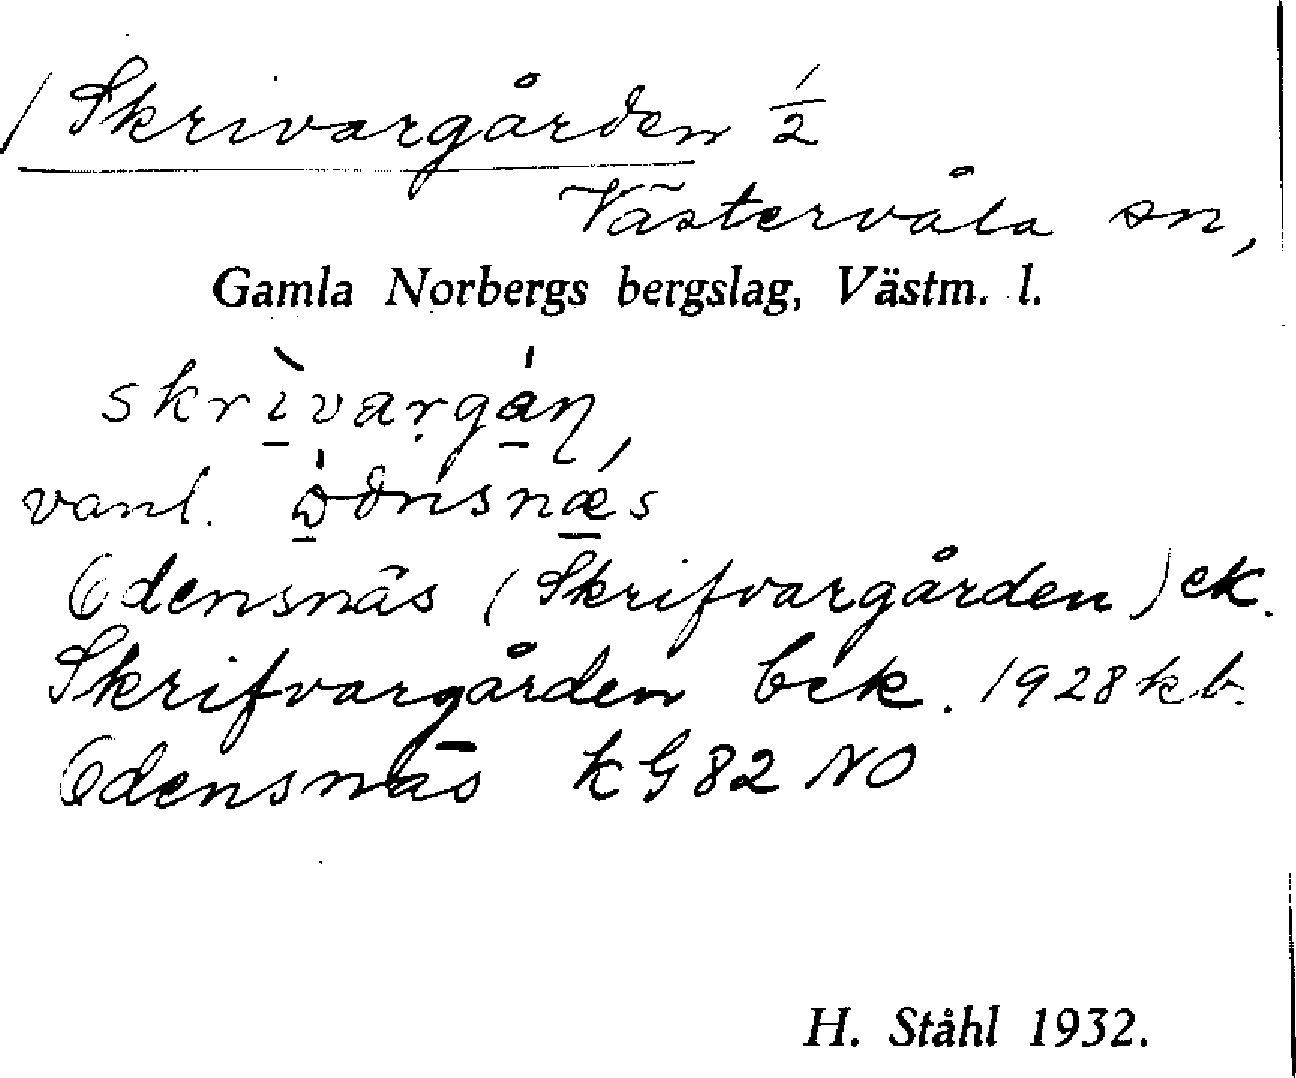 / Skrivargården 1/2
Västervåla sn,
Gamla Norbergs bergslag, Västm. l.
skrìvargán,
vanl. nsnæ´s
Odensnäs (Skrifvargården) ek.
Skrifvargården bek. 1928 kb.
Odensnäs kG 82 NO
H. Ståhl 1932.